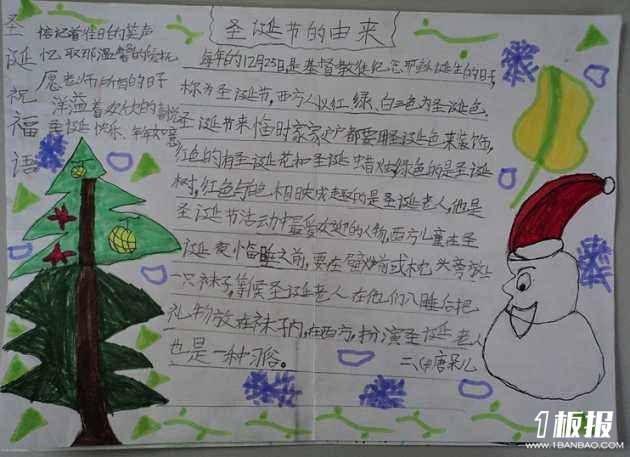 圣诞祝福语
惦记着往日的笑声
忆取那温馨的
愿老师所有的日子
洋溢着欢快的喜悦
圣诞快乐、年年如意
圣诞节的由来
每年的12月25日是基督教徒纪念耶稣诞生的日子,
称为圣诞节,西方人以红、绿、白三色为圣诞色,
圣诞节来临时家家户户都要用圣诞色来装饰,
红色的有圣诞花和圣诞蜡烛绿色的是圣诞
树,红色与白色相映成趣的是圣诞老人,他是
圣诞节活动中最受欢迎的人物,西方儿童在圣
诞夜临睡之前,要在壁炉前或枕头旁放上
一只袜子,等候圣诞老人在他们入睡后把
礼物放在袜子内,在西方,扮演圣诞老人
也是一种习俗。
1板报
WWW.1BANBAO.COM